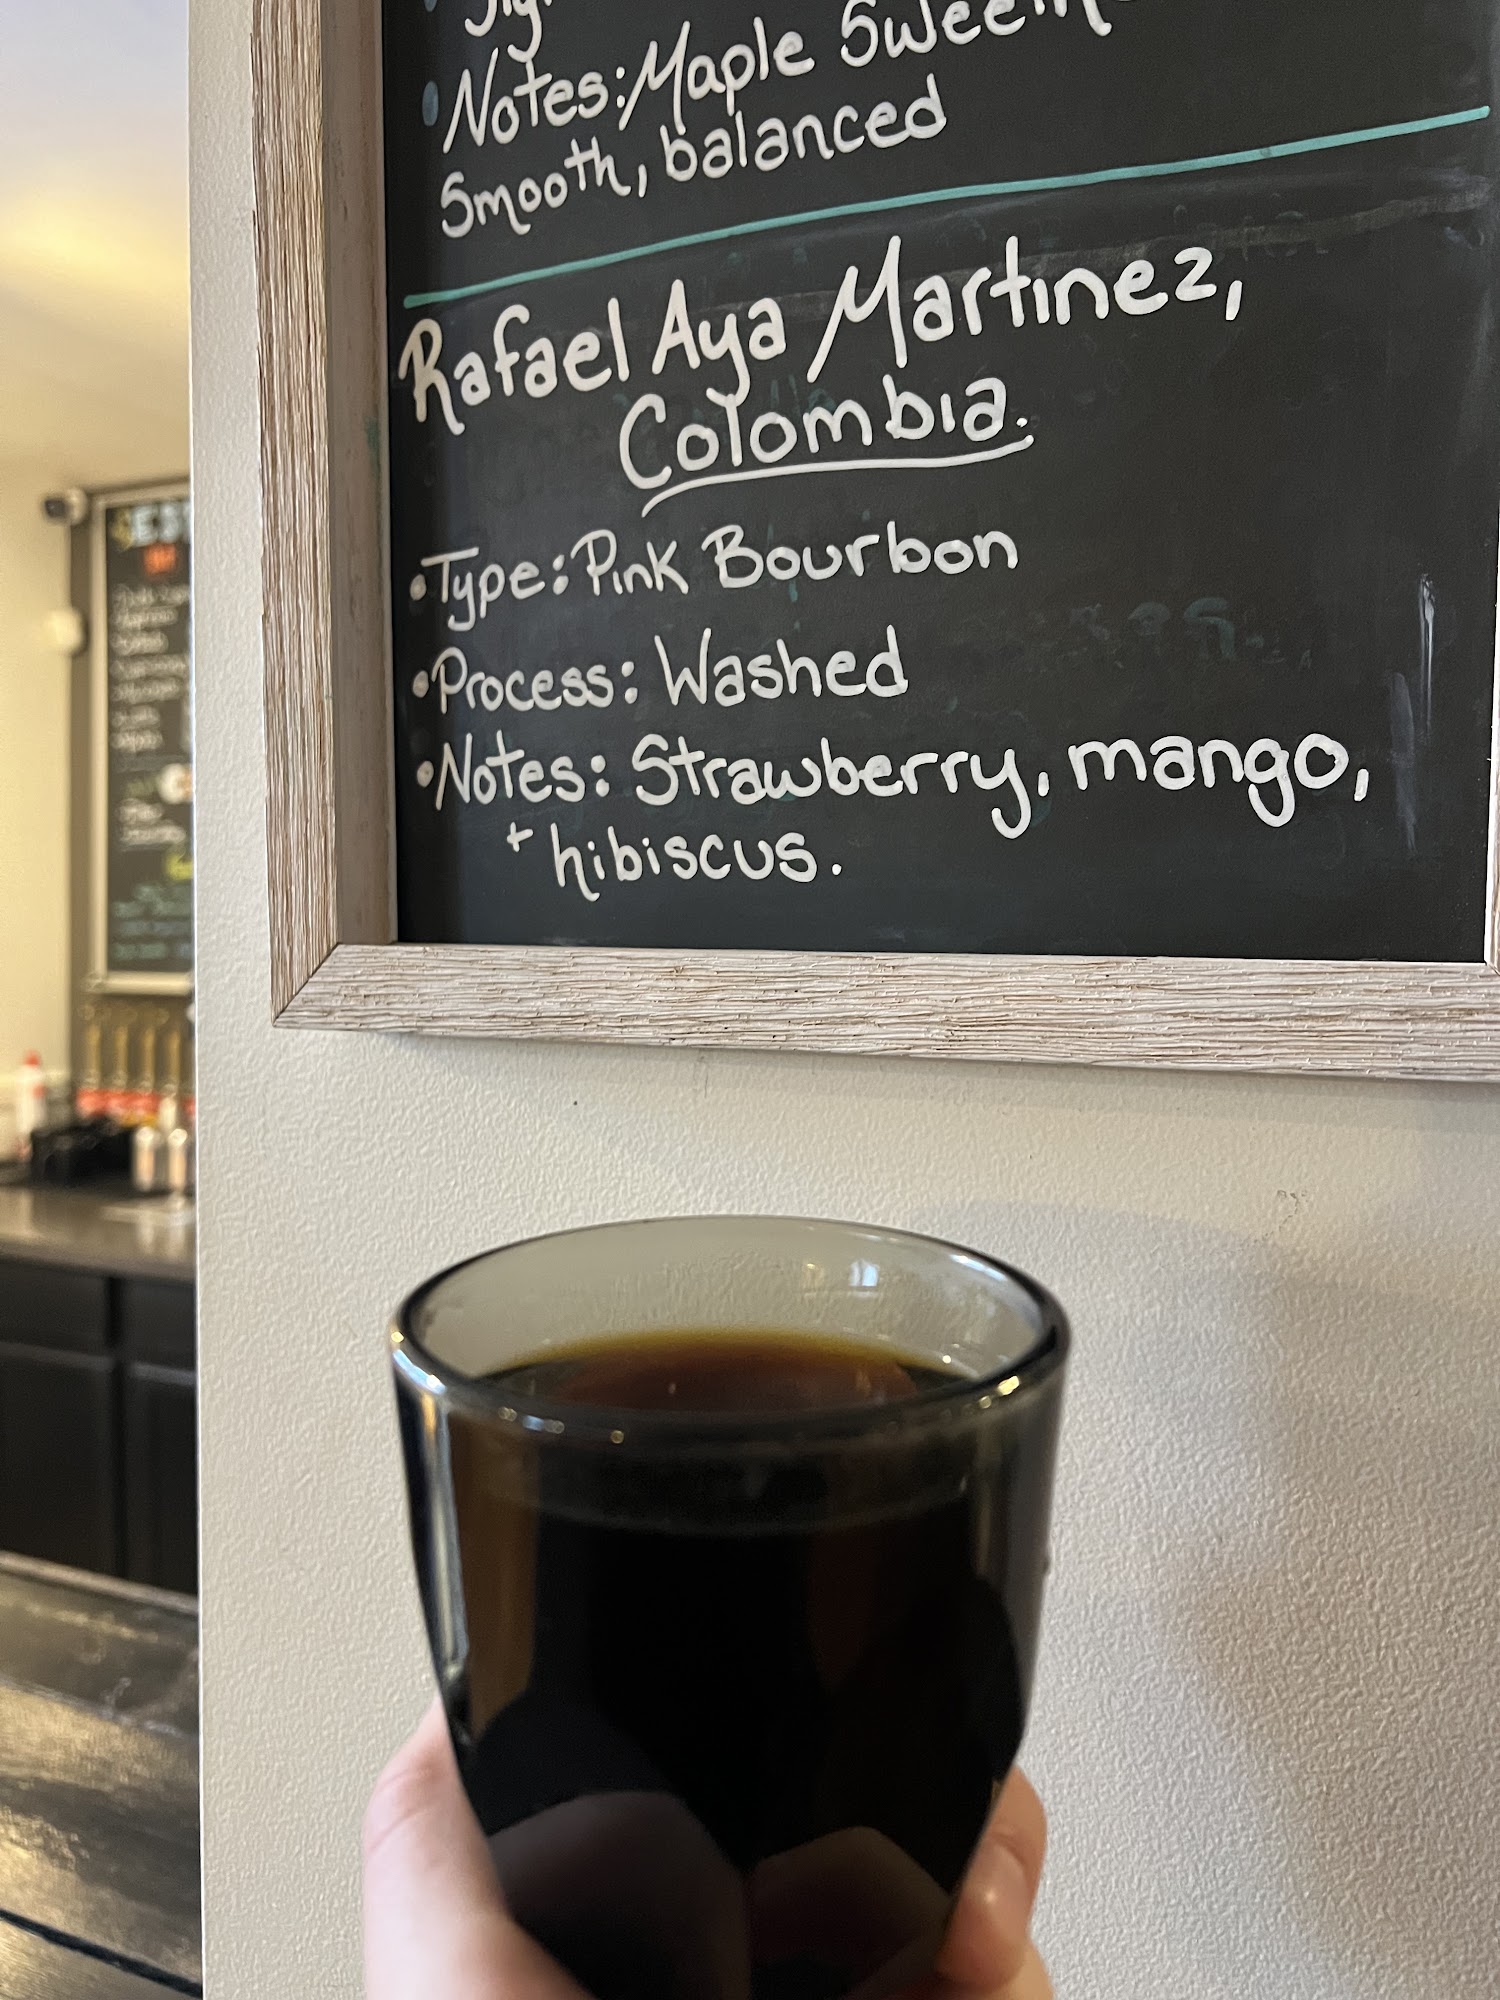 Notes: Maple
Smooth, balanced
Rafael Aya Martinez,
Colombia.
• Type: Pink Bourbon
• Process: Washed
• Notes: Strawberry, mango,
+ hibiscus.